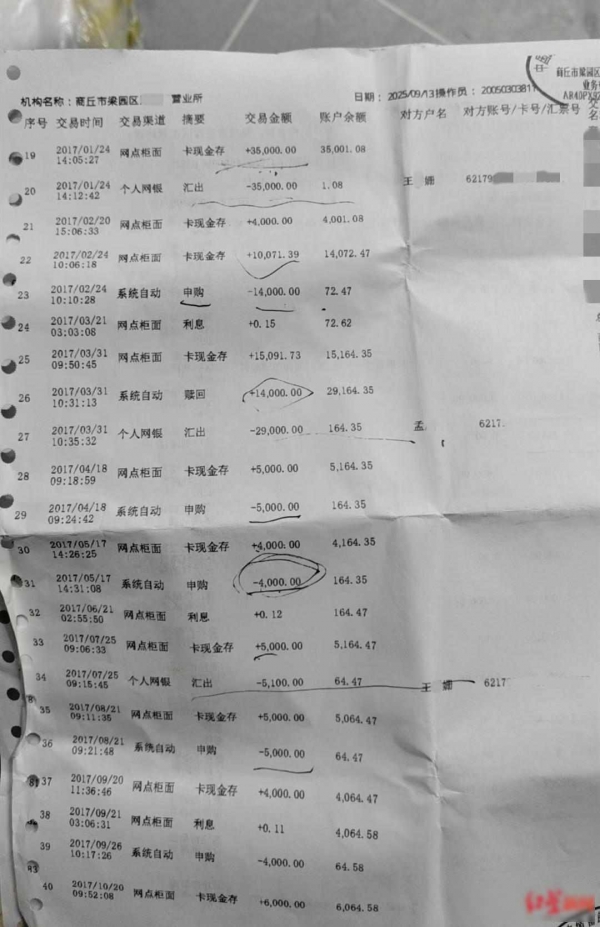 商丘市梁园区
业务
AR40PX92
机构名称：商丘市梁园区 营业所 日期：2025/09/13 操作员：20050303811
序号 交易时间 交易渠道 摘要 交易金额 账户余额 对方户名 对方账号/卡号/汇票号
19 2017/01/24 14:05:27 网点柜面 卡现金存 +35,000.00 35,001.08
20 2017/01/24 14:12:42 个人网银 汇出 -35,000.00 1.08 王 姗 6217
21 2017/02/20 15:06:33 网点柜面 卡现金存 +4,000.00 4,001.08
22 2017/02/24 10:06:18 网点柜面 卡现金存 +10,071.39 14,072.47
23 2017/02/24 10:10:28 系统自动 申购 -14,000.00 72.47
24 2017/03/21 03:03:08 网点柜面 利息 +0.15 72.62
25 2017/03/31 09:50:45 网点柜面 卡现金存 +15,091.73 15,164.35
26 2017/03/31 10:31:13 系统自动 赎回 +14,000.00 29,164.35
27 2017/03/31 10:35:32 个人网银 汇出 -29,000.00 164.35 孟 6217
28 2017/04/18 09:18:59 网点柜面 卡现金存 +5,000.00 5,164.35
29 2017/04/18 09:24:42 系统自动 申购 -5,000.00 164.35
30 2017/05/17 14:26:25 网点柜面 卡现金存 +4,000.00 4,164.35
31 2017/05/17 14:31:08 系统自动 申购 -4,000.00 164.35
32 2017/06/21 02:55:50 网点柜面 利息 +0.12 164.47
33 2017/07/25 09:06:33 网点柜面 卡现金存 +5,000.00 5,164.47
34 2017/07/25 09:15:45 个人网银 汇出 -5,100.00 64.47 王 姗 6217
35 2017/08/21 09:11:35 网点柜面 卡现金存 +5,000.00 5,064.47
36 2017/08/21 09:21:48 系统自动 申购 -5,000.00 64.47
37 2017/09/20 11:36:46 网点柜面 卡现金存 +4,000.00 4,064.47
38 2017/09/21 03:06:31 网点柜面 利息 +0.11 4,064.58
39 2017/09/26 10:17:26 系统自动 申购 -4,000.00 64.58
40 2017/10/20 09:52:08 网点柜面 卡现金存 +6,000.00 6,064.58